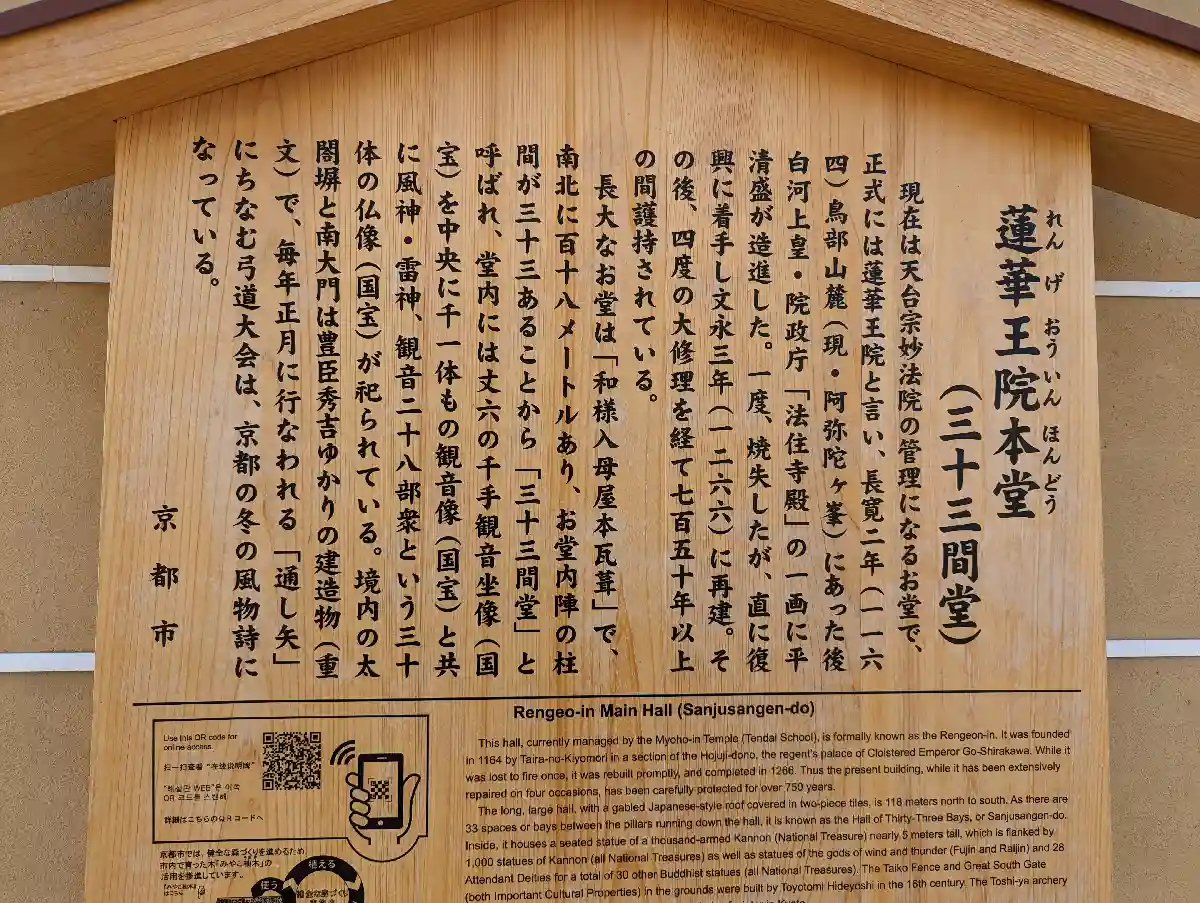 蓮華王院本堂
れん げ おういん ほんどう
（三十三間堂）
現在は天台宗妙法院の管理になるお堂で、
正式には蓮華王院と言い、長寛二年（一一六
四）鳥部山麓（現・阿弥陀ヶ峯）にあった後
白河上皇・院政庁「法住寺殿」の一画に平
清盛が造進した。一度、焼失したが、直に復
興に着手し文永三年（一二六六）に再建。そ
の後、四度の大修理を経て七百五十年以上
の間護持されている。
長大なお堂は「和様入母屋本瓦葺」で、
南北に百十八メートルあり、お堂内陣の柱
間が三十三あることから「三十三間堂」と
呼ばれ、堂内には丈六の千手観音坐像（国
宝）を中央に千一体もの観音像（国宝）と共
に風神・雷神、観音二十八部衆という三十
体の仏像（国宝）が祀られている。境内の太
閤塀と南大門は豊臣秀吉ゆかりの建造物（重
文）で、毎年正月に行なわれる「通し矢」
にちなむ弓道大会は、京都の冬の風物詩に
なっている。
京都市
Rengeo-in Main Hall (Sanjusangen-do)
This hall, currently managed by the Myoho-in Temple (Tendai School), is formally known as the Rengeon-in. It was founded
in 1164 by Taira-no-Kiyomori in a section of the Hojuji-dono, the regent's palace of Cloistered Emperor Go-Shirakawa. While it
was lost to fire once, it was rebuilt promptly, and completed in 1266. Thus the present building, while it has been extensively
repaired on four occasions, has been carefully protected for over 750 years.
The long, large hall, with a gabled Japanese-style roof covered in two-piece tiles, is 118 meters north to south. As there are
33 spaces or bays between the pillars running down the hall, it is known as the Hall of Thirty-Three Bays, or Sanjusangen-do.
Inside, it houses a seated statue of a thousand-armed Kannon (National Treasure) nearly 5 meters tall, which is flanked by
1,000 statues of Kannon (all National Treasures) as well as statues of the gods of wind and thunder (Fujin and Raijin) and 28
Attendant Deities for a total of 30 other Buddhist statues (all National Treasures). The Taiko Fence and Great South Gate
(both Important Cultural Properties) in the grounds were built by Toyotomi Hideyoshi in the 16th century. The Toshi-ya archery
Use this QR code for
online access.
扫一扫查看 "在线说明牌"
"해설판 WEB"은 이쪽
QR 코드를 스캔해
詳細はこちらのQRコードへ
京都市では、健全な森づくりを進めるため
市内で育った木「みやこ杣木」の
活用を推進しています。
植える
使う